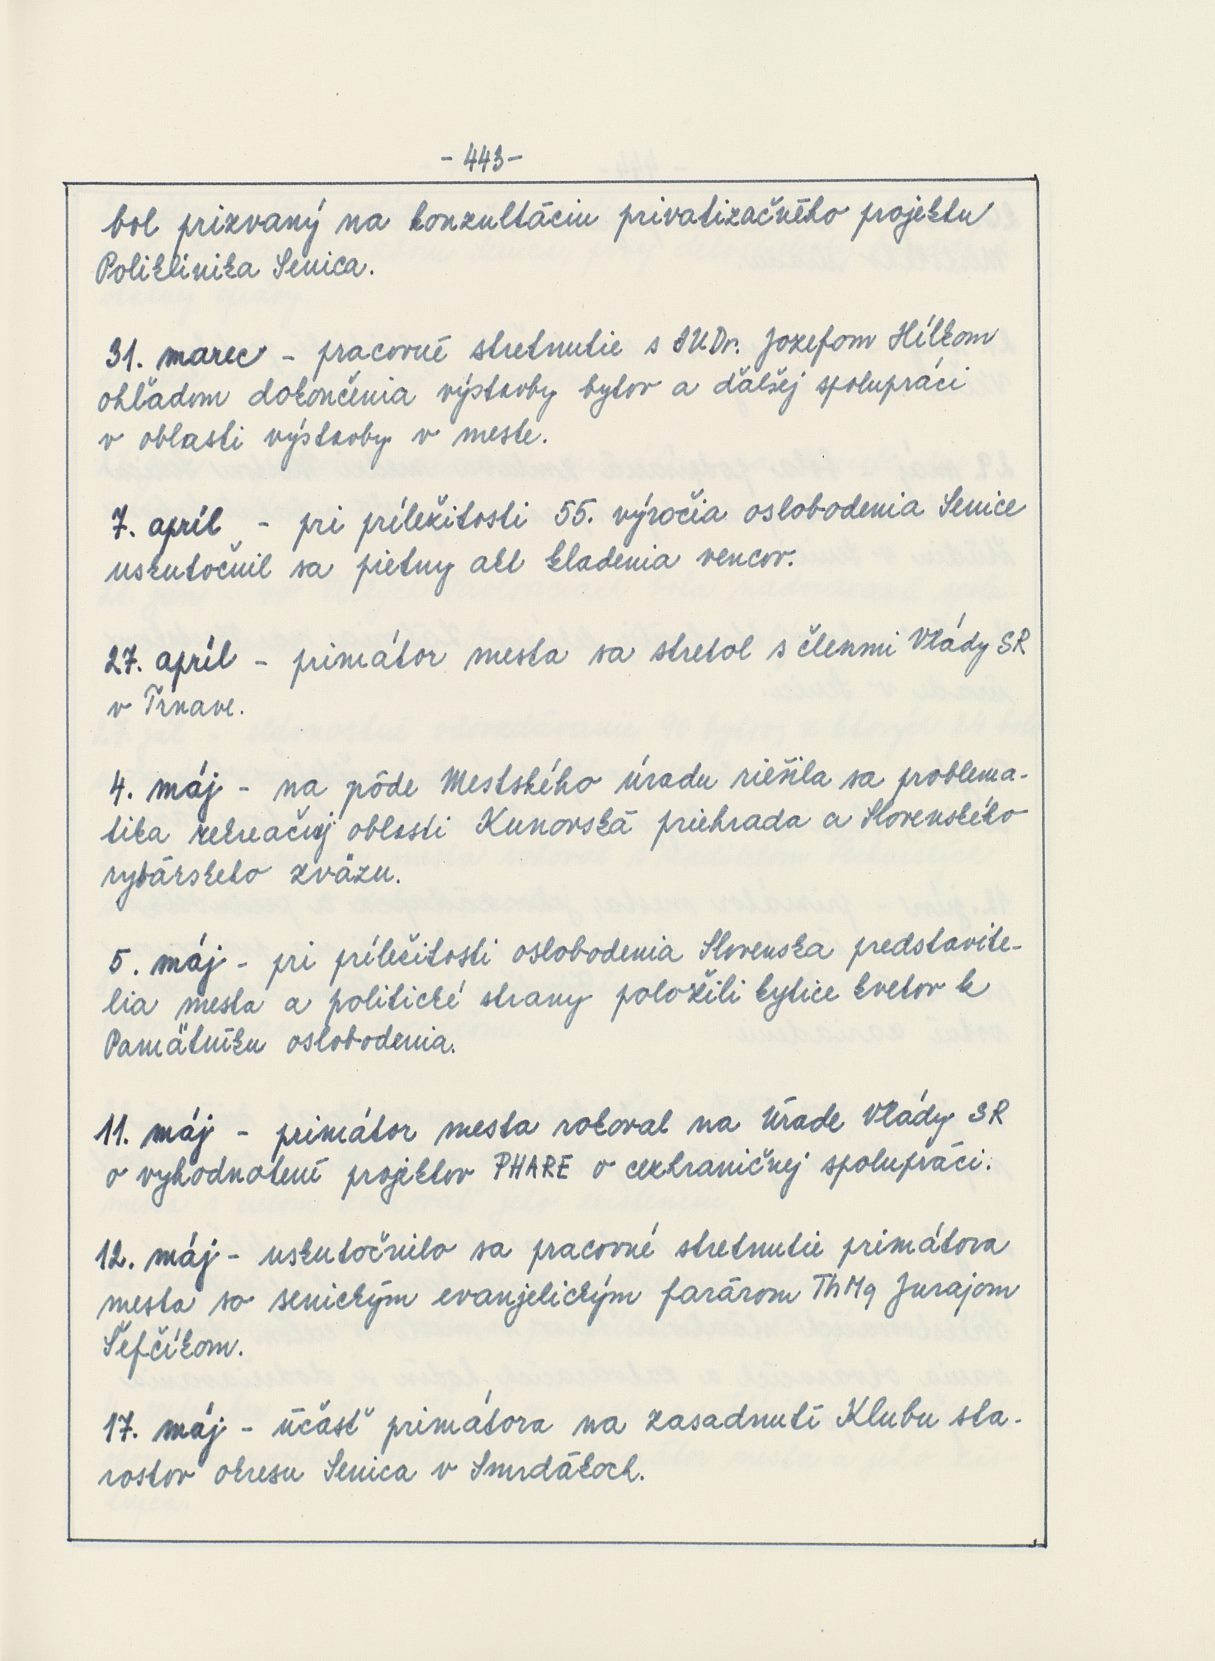 - 443 -
bol prizvaný na konzultáciu privatizačného projektu
Poliklinika Senica.
31. marec - pracovné stretnutie s JUDr. Jozefom Hílkom
ohľadom dokončenia výstavby bytov a ďalšej spolupráci
v oblasti výstavby v meste.
7. apríl - pri príležitosti 55. výročia oslobodenia Senice
uskutočnil sa pietny akt kladenia vencov.
27. apríl - primátor mesta sa stretol s členmi Vlády SR
v Trnave.
4. máj - na pôde Mestského úradu riešila sa problema-
tika rekreačnej oblasti Kunovská priehrada a Slovenského
rybárskeho zväzu.
5. máj - pri príležitosti oslobodenia Slovenska predstavite-
lia mesta a politické strany položili kytice kvetov k
Pamätníku oslobodenia.
11. máj - primátor mesta rokoval na Úrade Vlády SR
o vyhodnotení projektov PHARE o cezhraničnej spolupráci.
12. máj - uskutočnilo sa pracovné stretnutie primátora
mesta so senickým evanjelickým farárom ThMg Jurajom
Šefčíkom.
17. máj - účasť primátora na zasadnutí Klubu sta-
rostov okresu Senica v Smrdákoch.